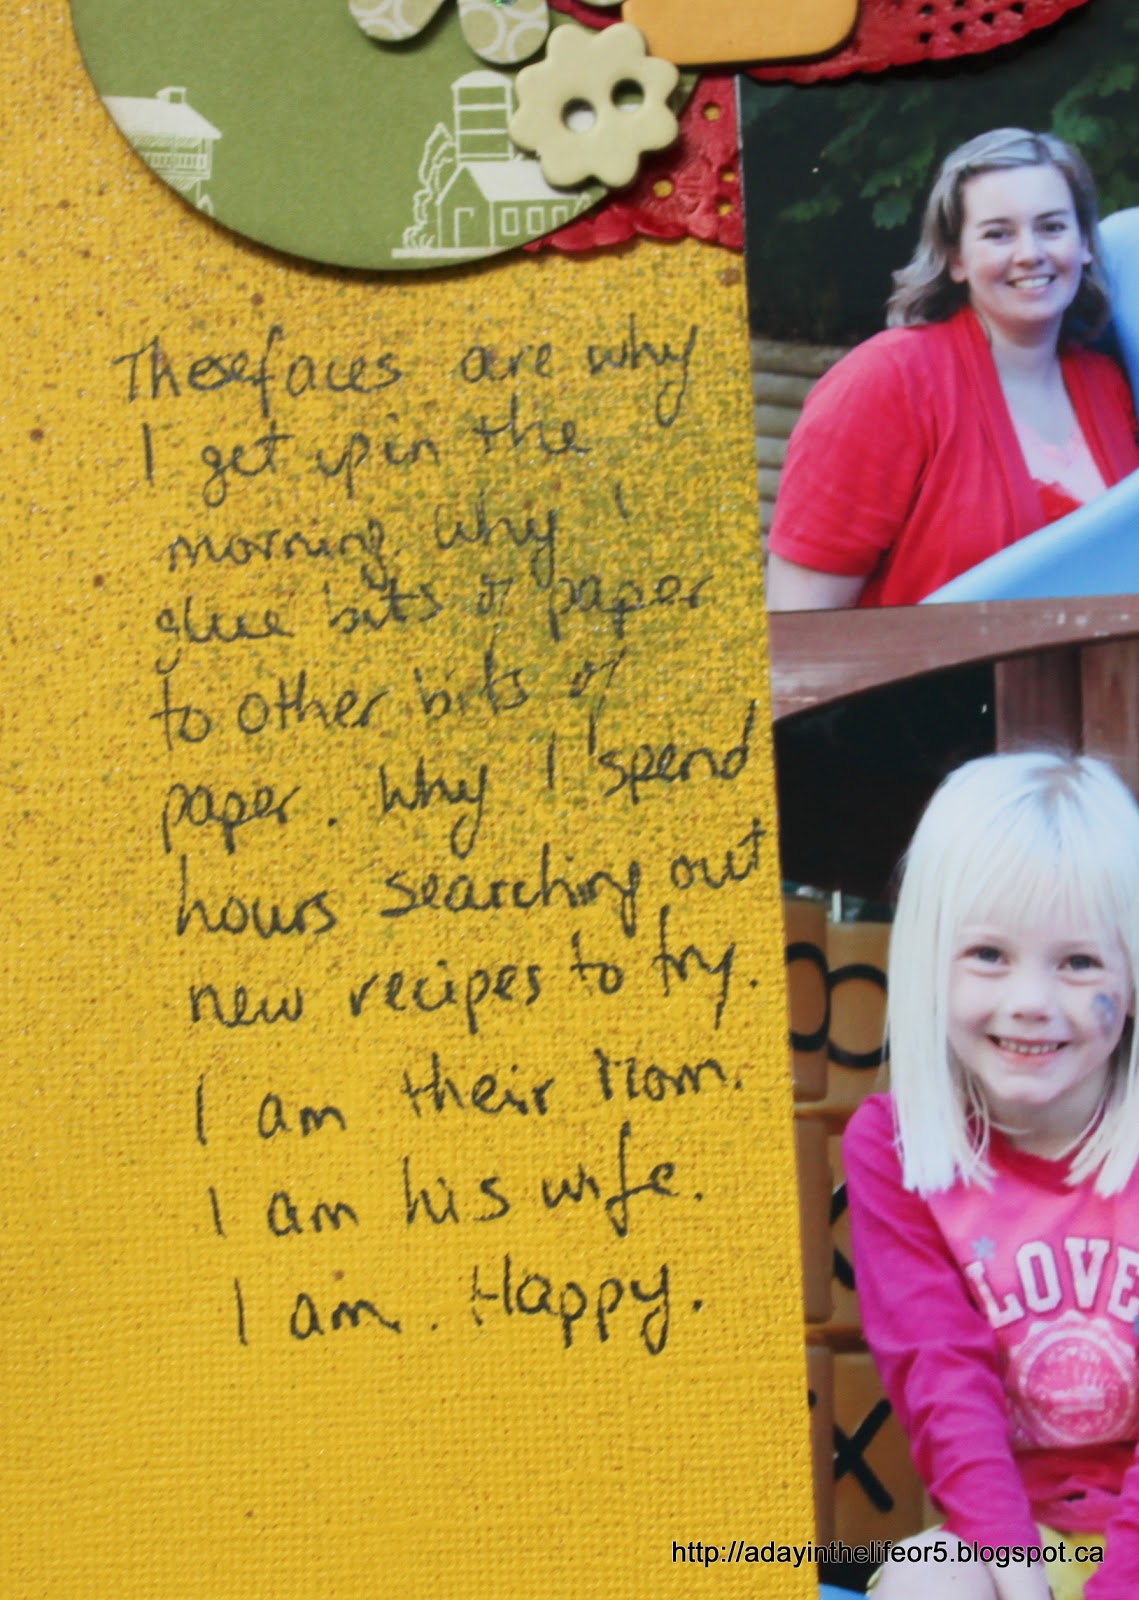 These faces are why
I get up in the
morning. Why I
glue bits of paper
to other bits of
paper. Why I spend
hours searching out
new recipes to try.
I am their Mom.
I am his wife.
I am. Happy.
LOVE
http://adayinthelifeor5.blogspot.ca